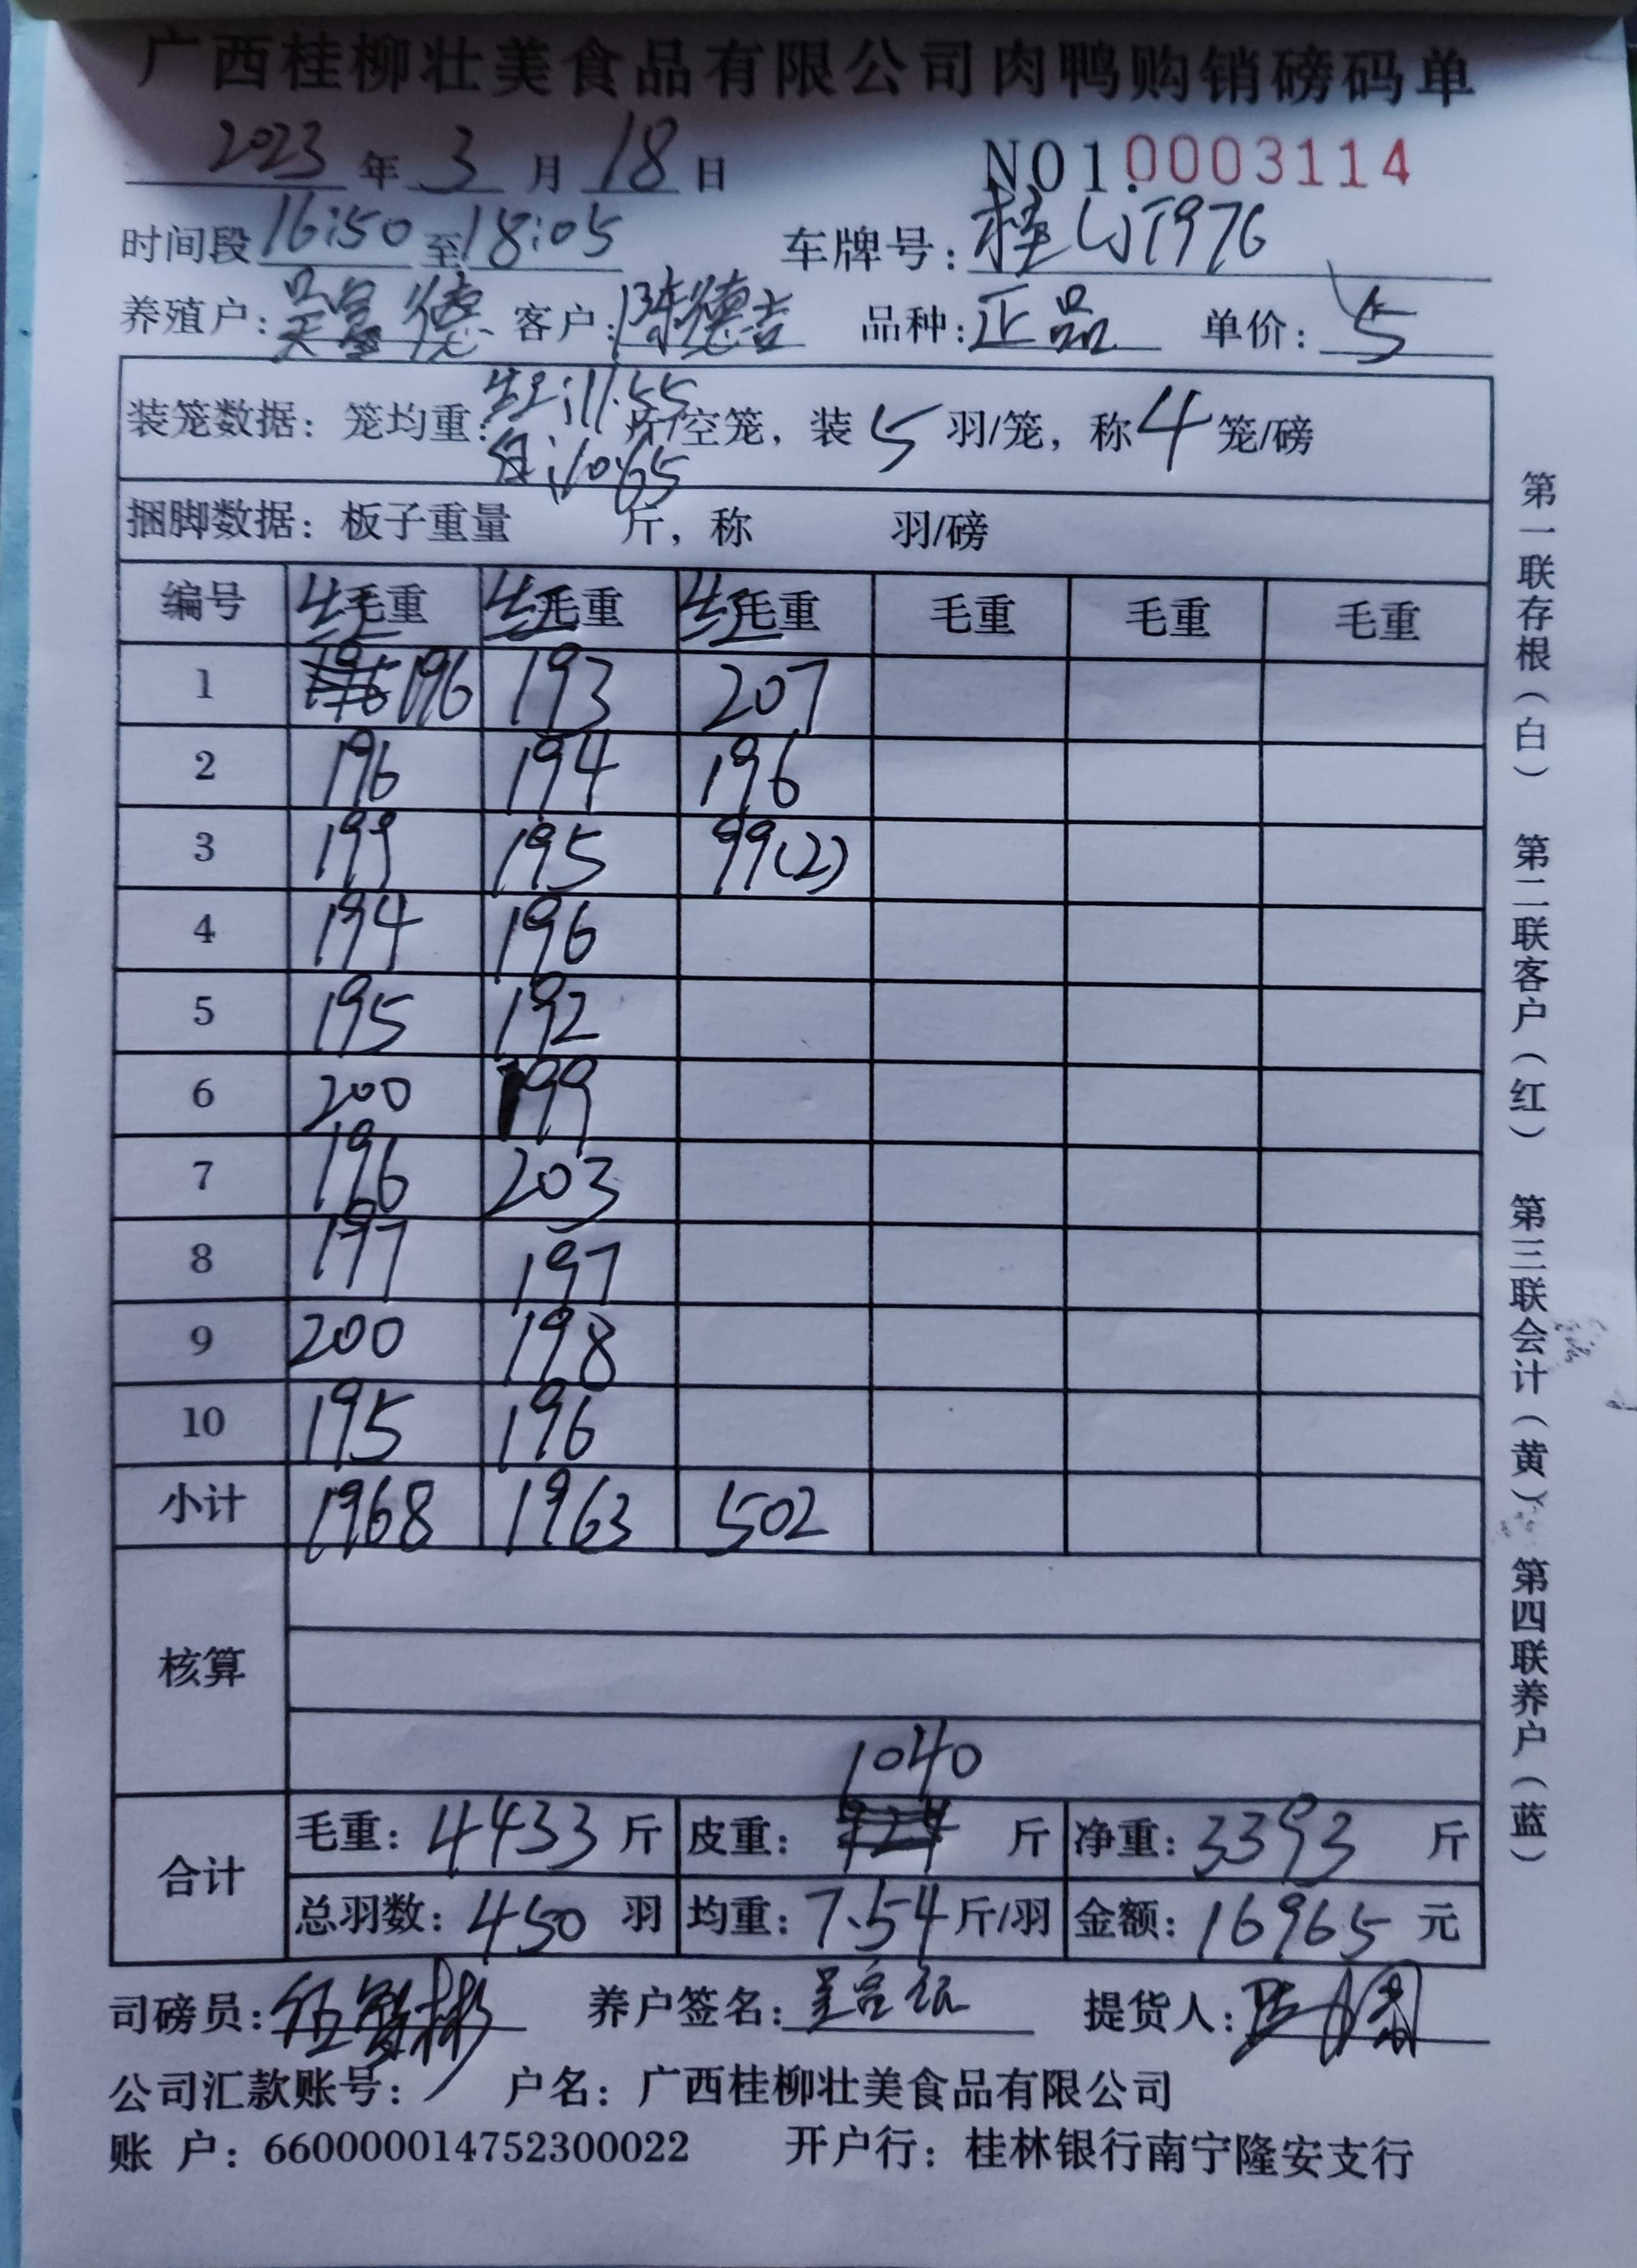 广西桂柳壮美食品有限公司肉鸭购销磅码单
2023年3月18日 NO1.0003114
时间段16:50至18:05 车牌号:桂WT976
养殖户:吴富德 客户:陈德吉 品种:正品 单价:5
装笼数据:笼均重:红:11.55 白:10.65 斤/空笼,装5羽/笼,称4笼/磅
捆脚数据:板子重量 斤,称 羽/磅
编号 红毛重 红毛重 红毛重 毛重 毛重 毛重
1 196 193 207
2 196 194 196
3 199 195 99(2)
4 194 196
5 195 192
6 200 199
7 196 203
8 197 197
9 200 198
10 195 196
小计 1968 1963 502
核算
1040
合计
毛重:4433斤 皮重: 斤 净重:3393斤
总羽数:450羽 均重:7.54斤/羽 金额:16965元
司磅员: 养户签名: 提货人:
公司汇款账号: 户名:广西桂柳壮美食品有限公司
账 户:660000014752300022 开户行:桂林银行南宁隆安支行
第一联存根(白) 第二联客户(红) 第三联会计(黄) 第四联养户(蓝)